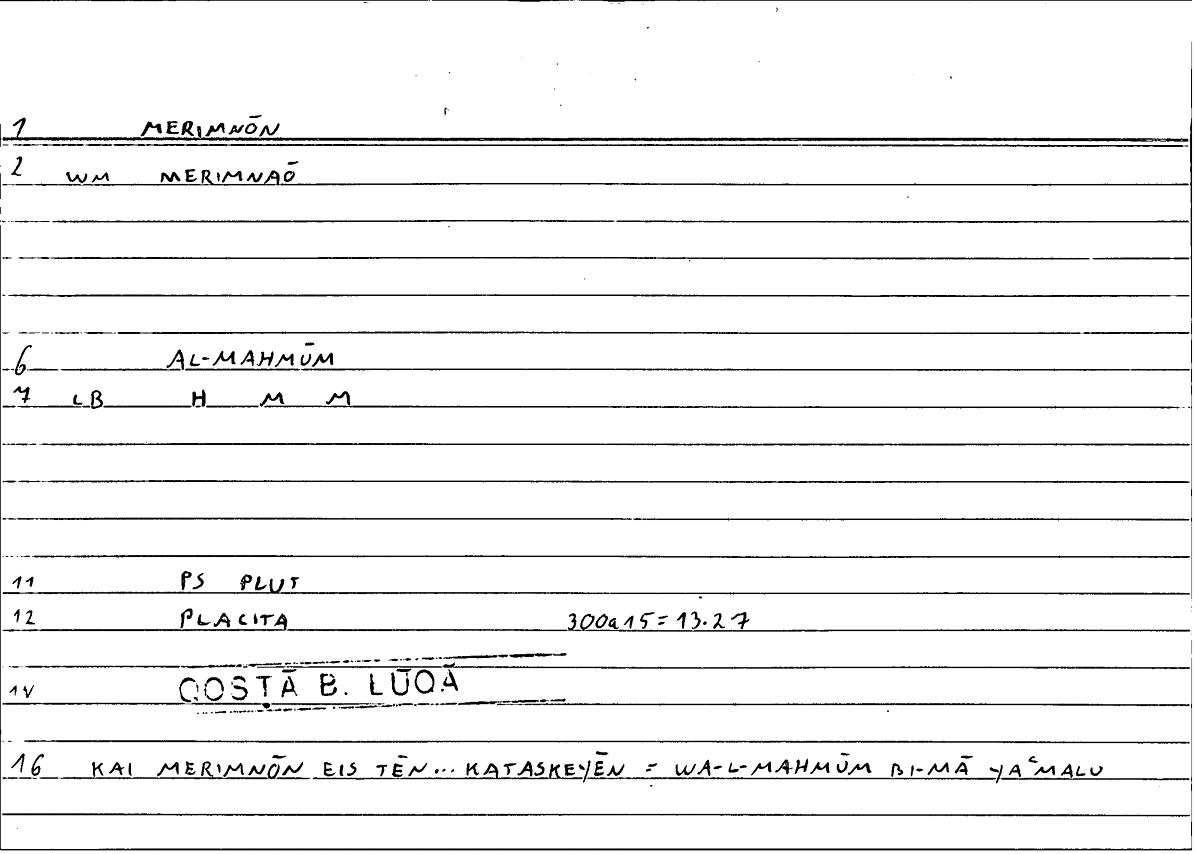 1 MERIMNŌN
2 WM MERIMNAŌ
6 AL-MAHMŪM
7 LB H M M
11 PS PLUT
12 PLACITA 300a15=13.27
14 QOSṬĀ B. LŪQĀ
16 KAI MERIMNŌN EIS TĒN... KATASKEYĒN = WA-L-MAHMŪM BI-MĀ YAʿMALU